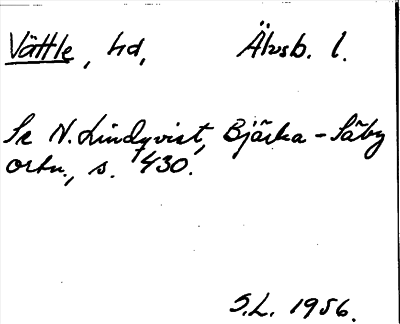 Vättle, hd, Älvsb. l.
Se N. Lindqvist, Bjärka-Säby
ortn., s. 430.
S.L. 1956.